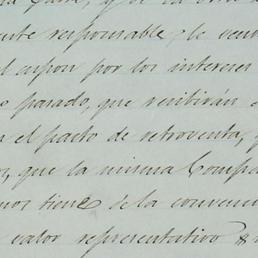 responsable, le
el cupon por los intereses
pasado, que recibirán
el pacto de retroventa,
que la misma Compa
tiene de la convenc
valor representativo